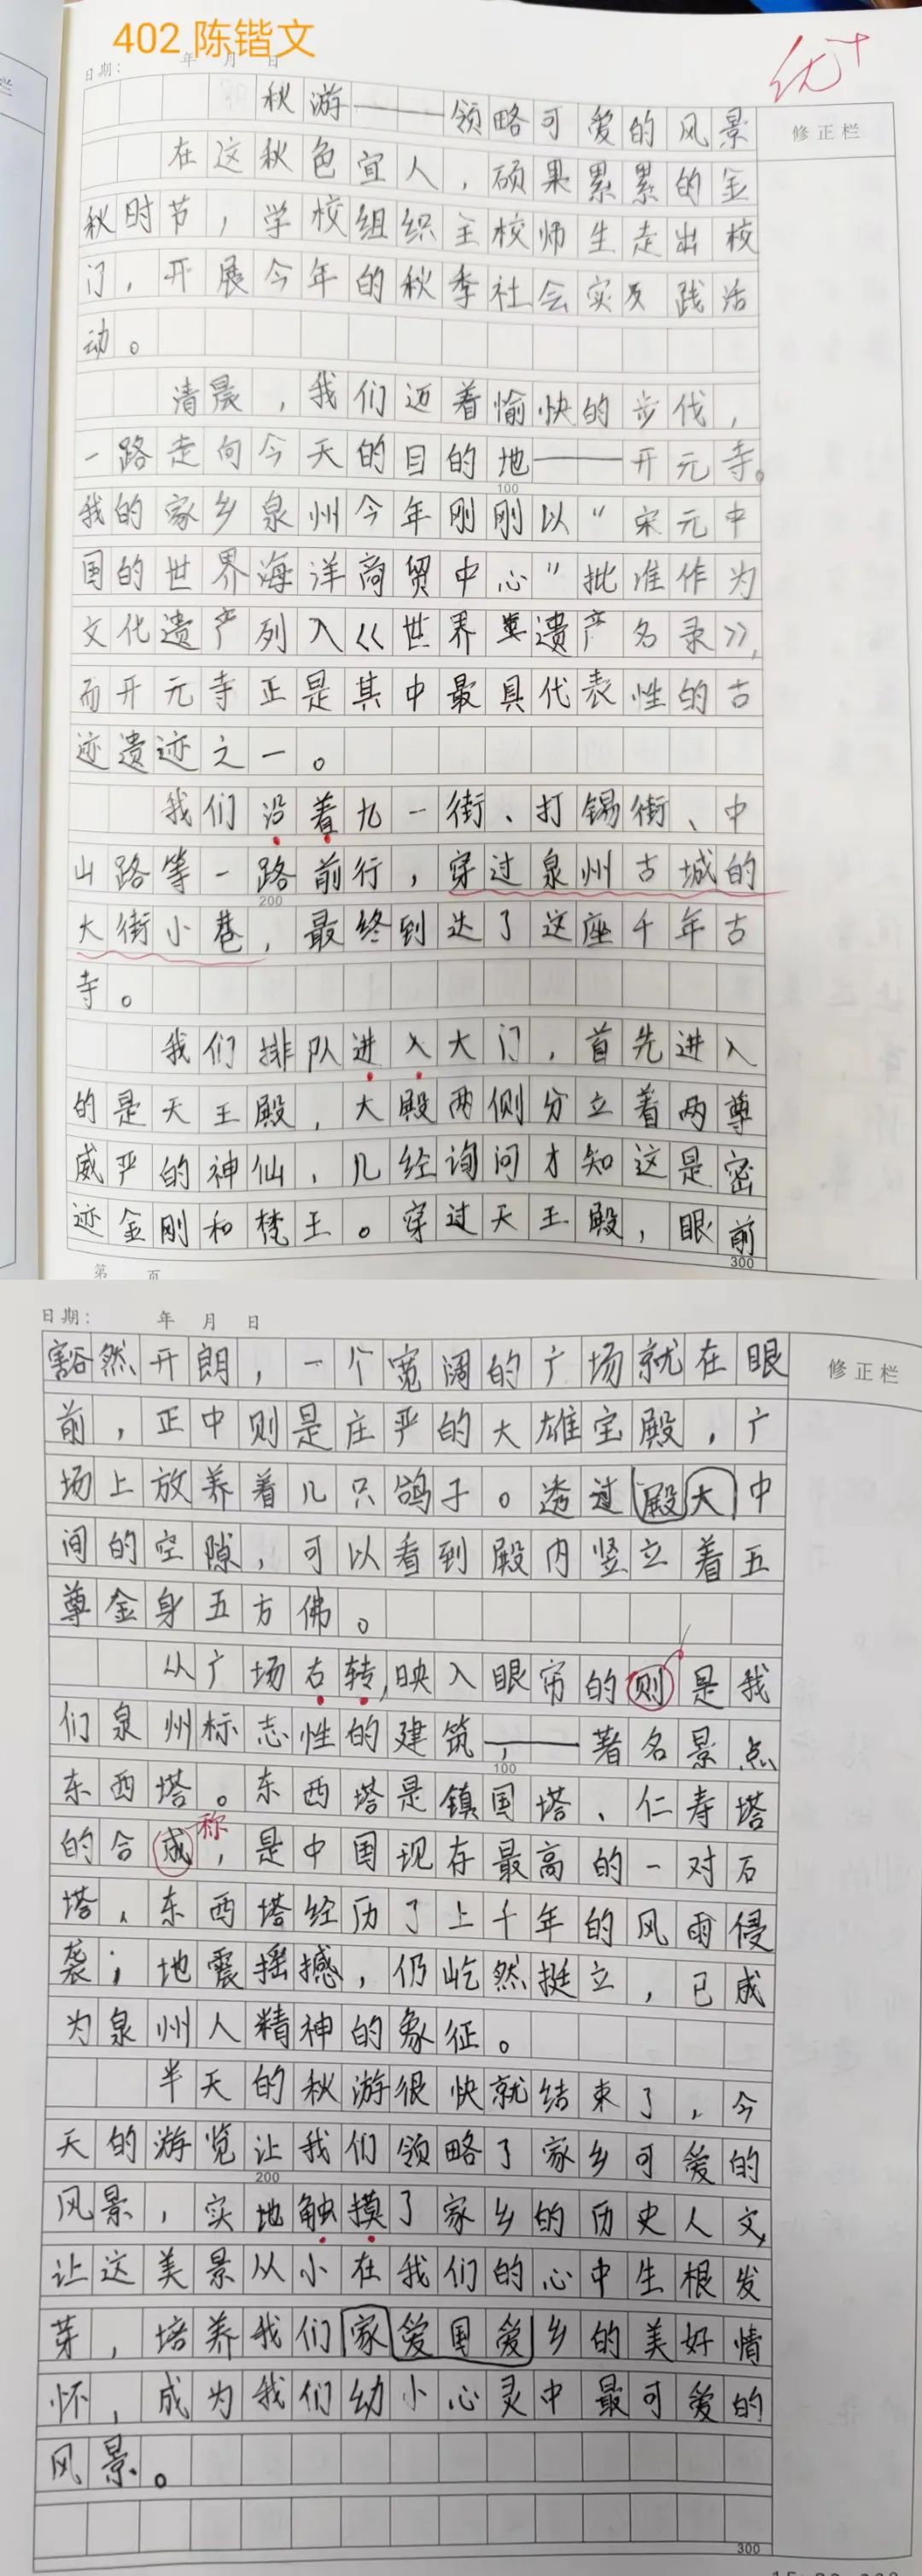 402 陈锴文
优+
日期： 年 月 日
修正栏
秋游——领略可爱的风景
在这秋色宜人，硕果累累的金
秋时节，学校组织全校师生走出校
门，开展今年的秋季社会实践活
动。
清晨，我们迈着愉快的步伐，
一路走向今天的目的地——开元寺。
100
我的家乡泉州今年刚刚以“宋元中
国的世界海洋商贸中心”批准作为
文化遗产列入《世界遗产名录》，
而开元寺正是其中最具代表性的古
迹遗迹之一。
我们沿着九一街、打锡街、中
山路等一路前行，穿过泉州古城的
200
大街小巷，最终到达了这座千年古
寺。
我们排队进入大门，首先进入
的是天王殿，大殿两侧分立着两尊
威严的神仙，几经询问才知这是密
迹金刚和梵王。穿过天王殿，眼前
300
第 页
日期： 年 月 日
修正栏
豁然开朗，一个宽阔的广场就在眼
前，正中则是庄严的大雄宝殿，广
场上放养着几只鸽子。透过殿大中
间的空隙，可以看到殿内竖立着五
尊金身五方佛。
从广场右转，映入眼帘的则是我
们泉州标志性的建筑——著名景点
100
东西塔。东西塔是镇国塔、仁寿塔
称
的合成，是中国现存最高的一对石
塔，东西塔经历了上千年的风雨侵
袭；地震摇撼，仍屹然挺立，已成
为泉州人精神的象征。
半天的秋游很快就结束了，今
天的游览让我们领略了家乡可爱的
200
风景，实地触摸了家乡的历史人文，
让这美景从小在我们的心中生根发
芽，培养我们家爱国爱乡的美好情
怀，成为我们幼小心灵中最可爱的
风景。
300